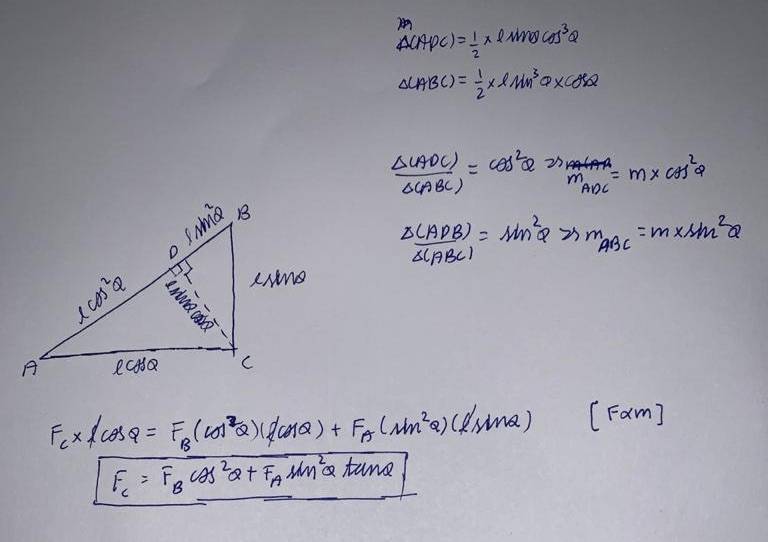 Δ(ADC) = 1/2 × l sinα cos³α
Δ(ABC) = 1/2 × l sin³α × cosα
Δ(ADC)/Δ(ABC) = cos²α ⇒ m_ADC = m × cos²α
Δ(ADB)/Δ(ABC) = sin²α ⇒ m_ABC = m × sin²α
B
l sin²α
D
l cos²α
l sinα cosα
l sinα
A
l cosα
C
F_C × l cosα = F_B (cos²α)(l cosα) + F_A (sin²α)(l sinα) [F α m]
F_C = F_B cos²α + F_A sin²α tanα